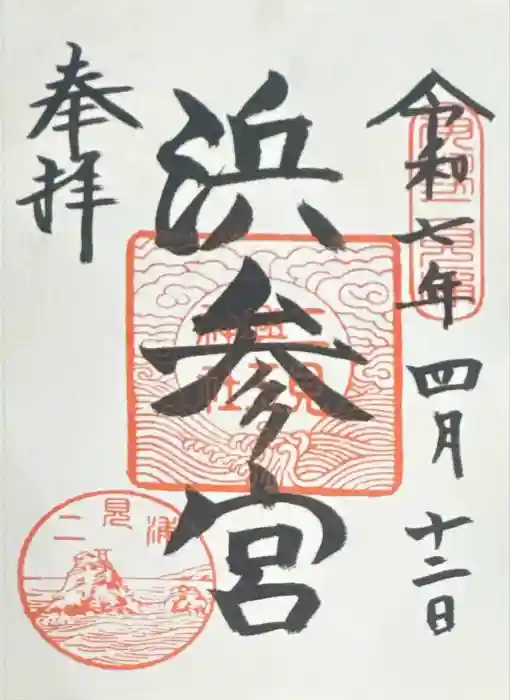 令和七年四月十二日
浜参宮
奉拝
二見浦